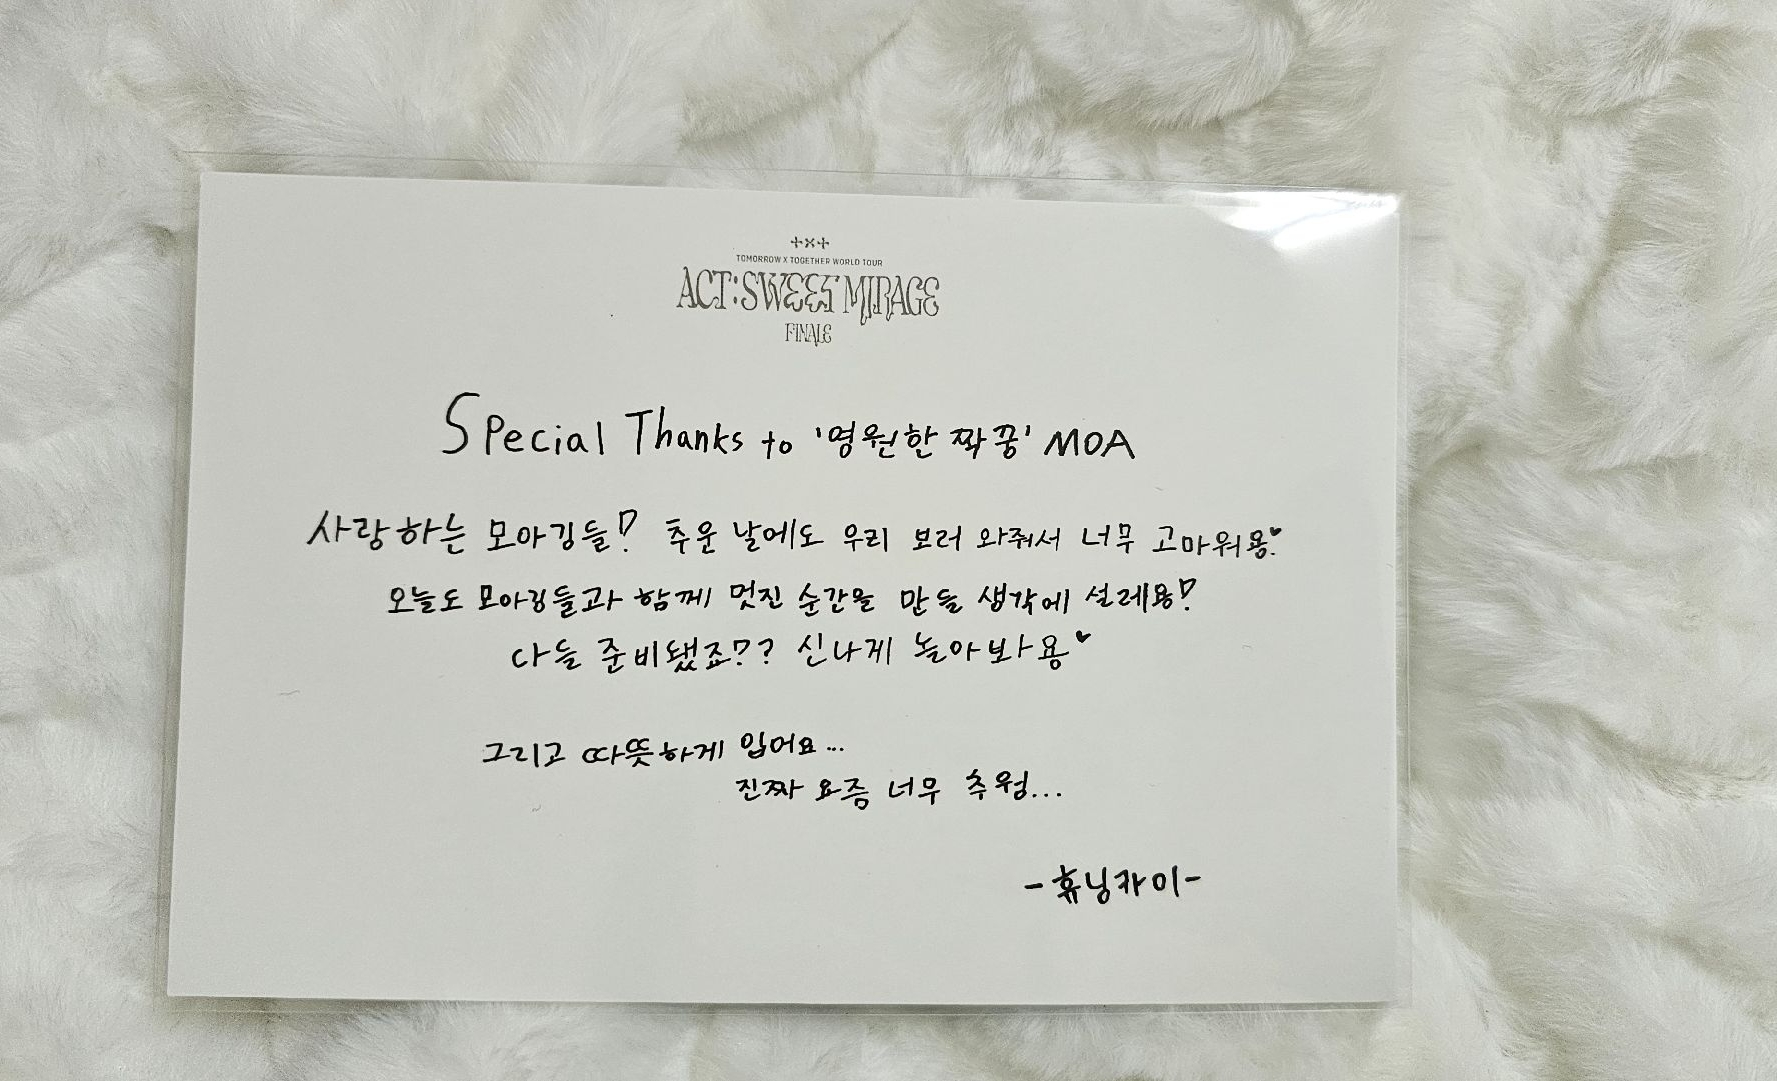 +×+
TOMORROW X TOGETHER WORLD TOUR
ACT:SWEET MIRAGE
FINALE
Special Thanks to '영원한 짝꿍' MOA
사랑하는 모아깅들! 추운 날에도 우리 보러 와줘서 너무 고마워용♥
오늘도 모아깅들과 함께 멋진 순간을 만들 생각에 설레용!
다들 준비됐죠?? 신나게 놀아보아용♥
그리고 따뜻하게 입어요...
진짜 요즘 너무 추웡...
-휴닝카이-